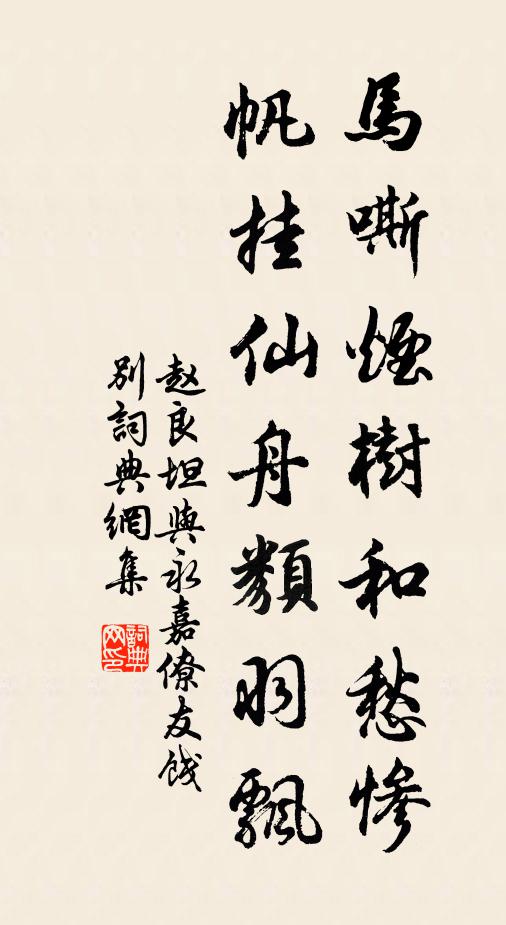 馬嘶煙樹和愁慘
帆挂仙舟類羽飄
赵良坦與永嘉僚友餞
別詞典網集
詞典
网印